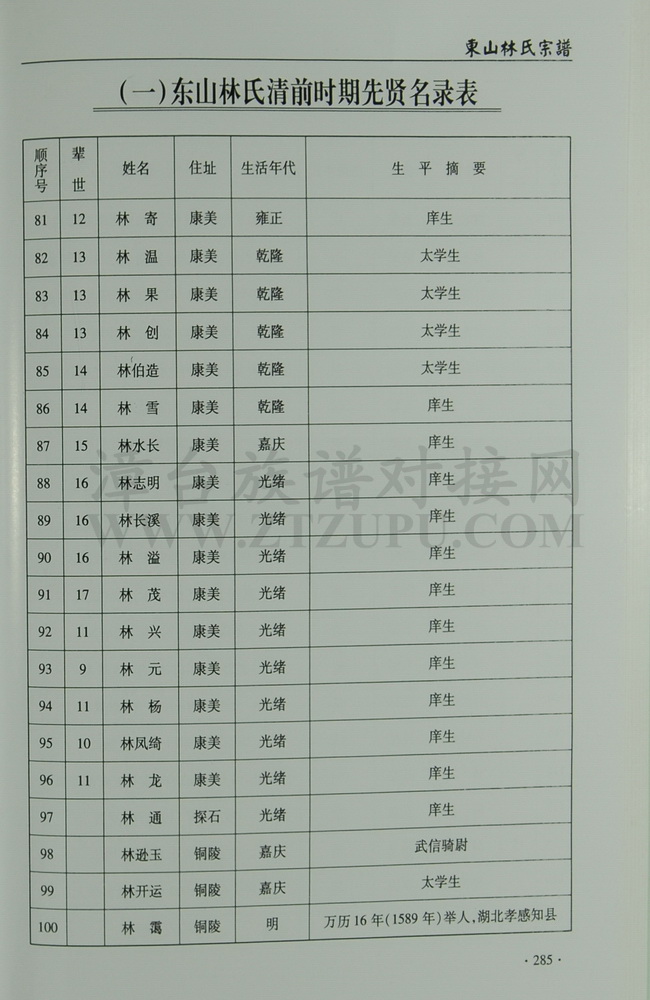 東山林氏宗譜
(一)东山林氏清前时期先贤名录表
顺序号 辈世 姓名 住址 生活年代 生平摘要
81 12 林寄 康美 雍正 庠生
82 13 林温 康美 乾隆 太学生
83 13 林果 康美 乾隆 太学生
84 13 林创 康美 乾隆 太学生
85 14 林伯造 康美 乾隆 太学生
86 14 林雪 康美 乾隆 庠生
87 15 林水长 康美 嘉庆 庠生
88 16 林志明 康美 光绪 庠生
89 16 林长溪 康美 光绪 庠生
90 16 林溢 康美 光绪 庠生
91 17 林茂 康美 光绪 庠生
92 11 林兴 康美 光绪 庠生
93 9 林元 康美 光绪 庠生
94 11 林杨 康美 光绪 庠生
95 10 林凤绮 康美 光绪 庠生
96 11 林龙 康美 光绪 庠生
97 林通 探石 光绪 庠生
98 林逊玉 铜陵 嘉庆 武信骑尉
99 林开运 铜陵 嘉庆 太学生
100 林霭 铜陵 明 万历16年(1589年)举人,湖北孝感知县
漳台族谱对接网
WWW.ZTZUPU.COM
·285·